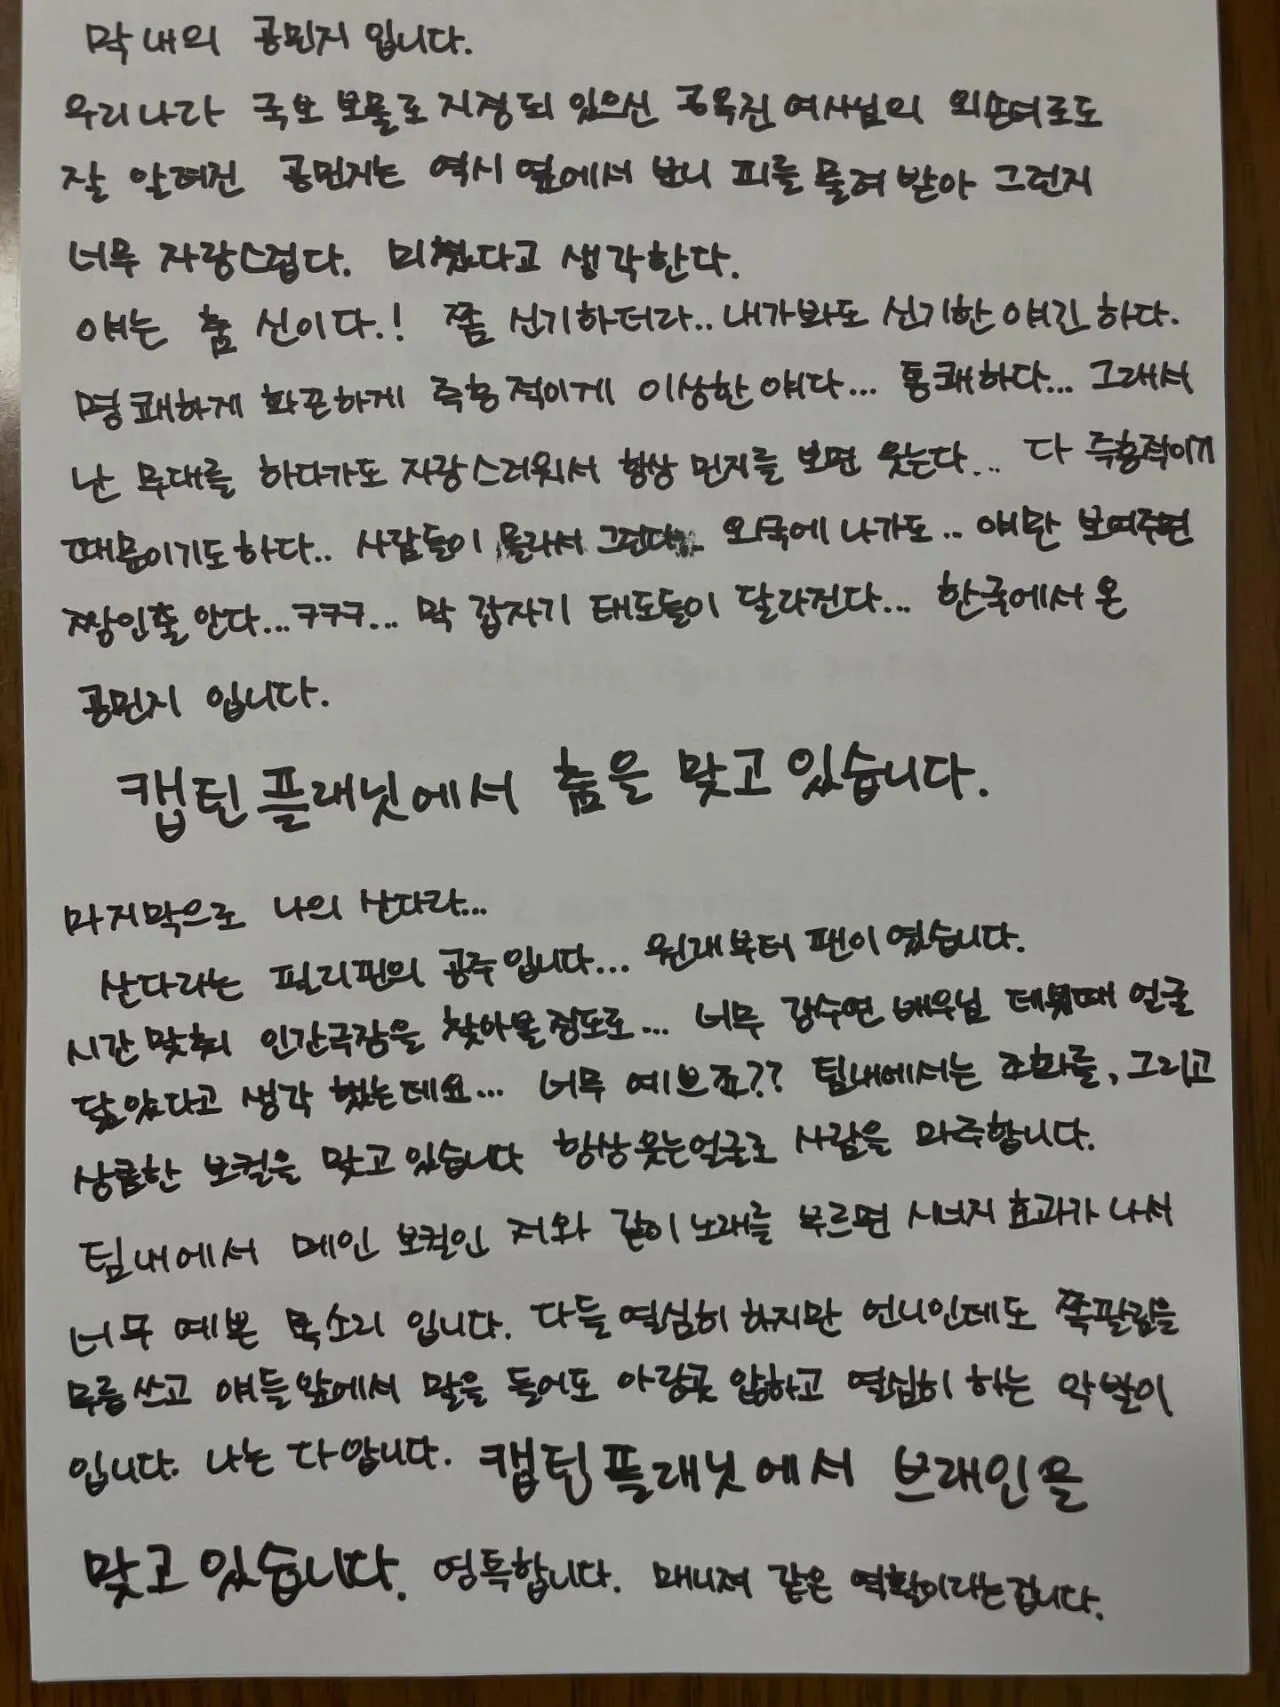 막내의 공민지 입니다.
우리나라 국보 보물로 지정되 있으신 공옥진 여사님의 외손녀로도
잘 알려진 공민지는 역시 옆에서 보니 피를 물려 받아 그런지
너무 자랑스럽다. 미쳤다고 생각한다.
얘는 춤 신이다.! 쫌 신기하더라.. 내가봐도 신기한 얘긴 하다.
명쾌하게 화끈하게 즉흥적이게 이상한 얘다... 통쾌하다... 그래서
난 무대를 하다가도 자랑스러워서 항상 민지를 보면 웃는다... 다 즉흥적이기
때문이기도하다.. 사람들이 몰라서 그런다.. 외국에 나가도.. 얘만 보여주면
짱인줄 안다...ㅋㅋㅋ... 막 갑자기 태도들이 달라진다... 한국에서 온
공민지 입니다.
캡틴플래닛에서 춤을 맞고있습니다.
마지막으로 나의 산다라...
산다라는 필리핀의 공주입니다... 원래부터 팬이였습니다.
시간 맞춰 인간극장을 찾아볼정도로... 너무 강수연 배우님 데뷔때 얼굴
닮았다고 생각 했는데요... 너무 예쁘죠?? 팀내에서는 조화를, 그리고
상큼한 보컬을 맞고있습니다 항상웃는얼굴로 사람을 마주합니다.
팀내에서 메인 보컬인 저와 같이 노래를 부르면 시너지 효과가 나서
너무 예쁜 목소리 입니다. 다들 열심히 하지만 언니인데도 쪽팔림을
무릎쓰고 얘들앞에서 말을 들어도 아랑곳 않하고 열심히 하는 악발이
입니다. 나는 다압니다. 캡틴플래닛에서 브레인을
맞고있습니다. 영특합니다. 매니져 같은 역활이라는겁니다.